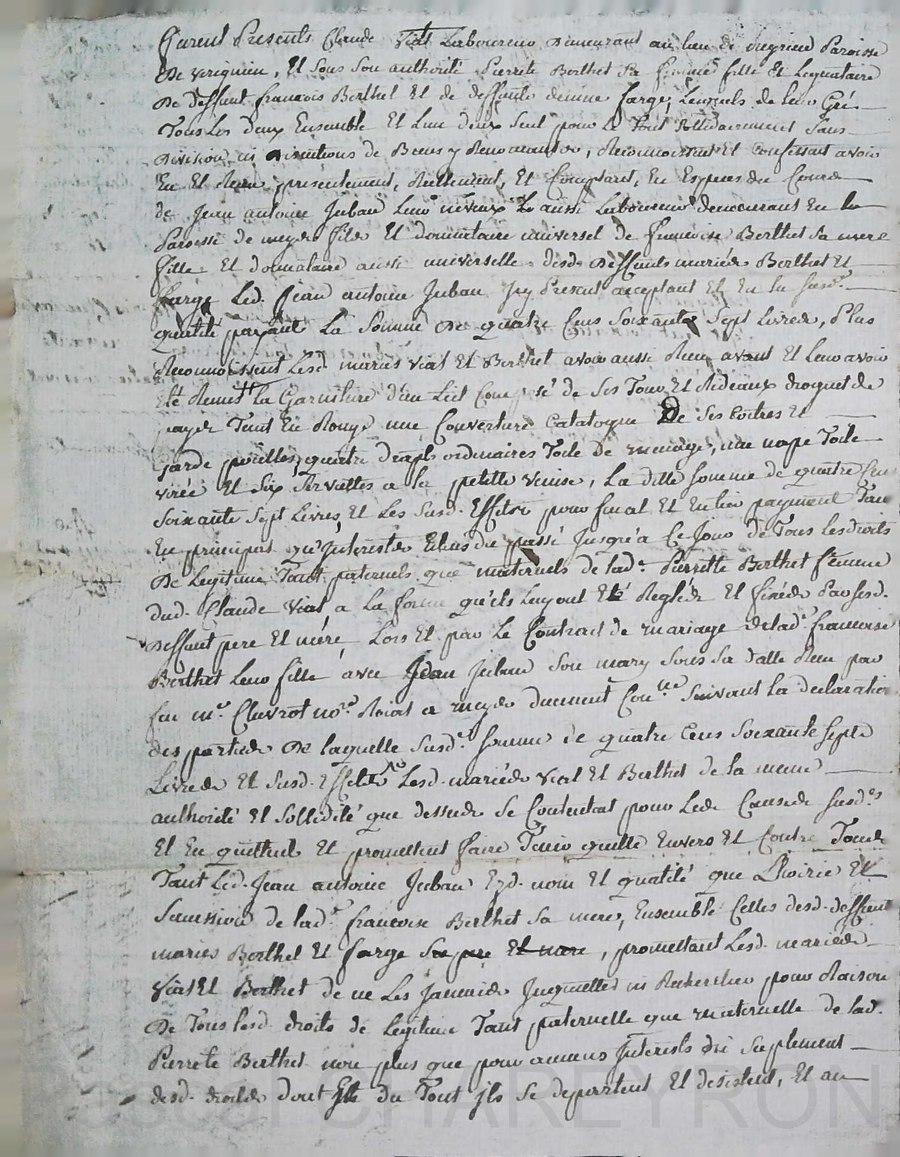 furent Presents Claude Vial Laboureur Demeurant au lieu de Paroisse
De , Et sous son authorité Pierrete Berthet sa femme fille Et Legataire
De deffunt francois Berthet Et de deffunte farge, Lesquels de leur Gré
Tous Les deux Ensemble Et L'un deux seul pour Le Tout sollidairement sans
Division ni de Biens y Renoncants, Reconnoissent Et Confessent avoir
Eu Et Receu presentement, Reellement, Et Comptant, En Especes du Cours
de Jean antoine Juban Leur neveux aussi Laboureur demeurant En la
Paroisse de fils Et donnataire universel de francoise Berthet sa mere
fille Et donnataire aussi universelle desd. Deffunts mariés Berthet Et
farge Led. Jean antoine Juban Icy Present acceptant Et En la susd.e
qualité payant La somme De quatre Cens soixante sept Livres, Plus
Reconnoissent Lesd. mariés Vial Et Berthet avoir aussi Receu avant Et Leur avoir
Eté Remis La Garniture d'un Lict Composé de ses Tour Et Rideaux droguet de
payes Teint En Rouge une Couverture Catalogne De ses Coitres Et
garde pailles, quatre draps ordinaires Toile de menage, une nape Toile
Et six serviettes a la petitte Venise, La ditte somme de quatre Cens
soixante sept Livres Et Les susd. Effets pour final Et Entier payement Tant
En principal qu'Interests du passé Jusqu'a Ce Jour de Tous Les droits
De Legitime Tant paternels que maternels de lad.e Pierrette Berthet femme
dud. Claude Vial a La forme qu'ils Luy ont Eté Reglés Et fixés Par sesd.
Deffunt pere Et mére, Lors Et par Le Contract de mariage de lad.e francoise
Berthet Leur fille avec Jean Juban son mary sous sa datte Receu par
feu m.e Chevrot no.re Roial a duement Con.lle suivant La declaration
des parties De laquelle susd.e somme de quatre Cens soixante sept
Livres Et susd. Effets Lesd. mariés Vial Et Berthet de la meme
authorité Et sollidité que dessus se Contentent pour Les Causes susd.es
Et En quittent Et promettent faire Tenir quitte Envers Et Contre Tous
Tant Led. Jean antoine Juban Ezd. nom Et qualité que L'hoirie Et
succession de lad.e francoise Berthet sa mere, Ensemble Celles desd. deffunt
mariés Berthet Et farge , promettant Lesd. mariés
Vial Et Berthet de ne Les Jamais Inquietter ni Rechercher pour Raison
De Tous Lesd. droits de Legitime Tant paternelle que maternelle de lad.
Pierrete Berthet non plus que pour aucuns Interests supplement
desd. droits dont Et du Tout ils se departent Et desistent, Et au
CHAREYRON